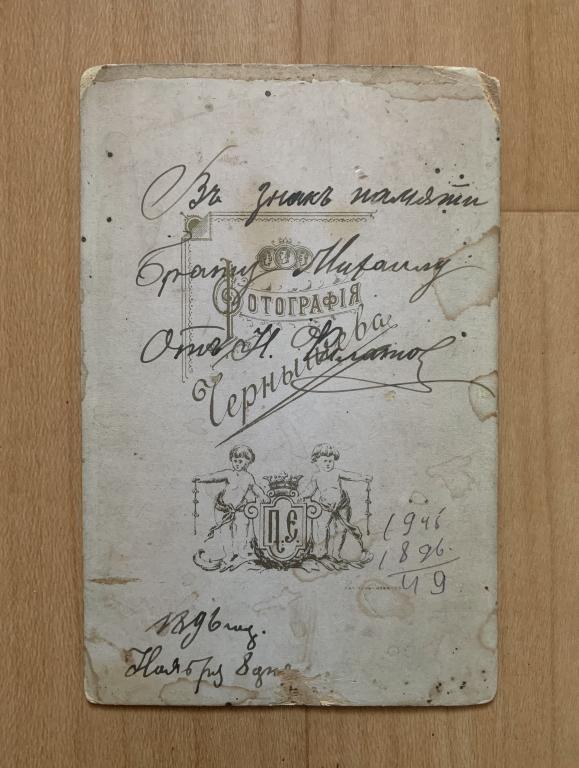 Въ знакъ памяти
Брату Михаилу
Фотографія
Отъ Н.
Чернышева
П. Е.
1946
1896.
49
1896 год.
Ноября 8 дня